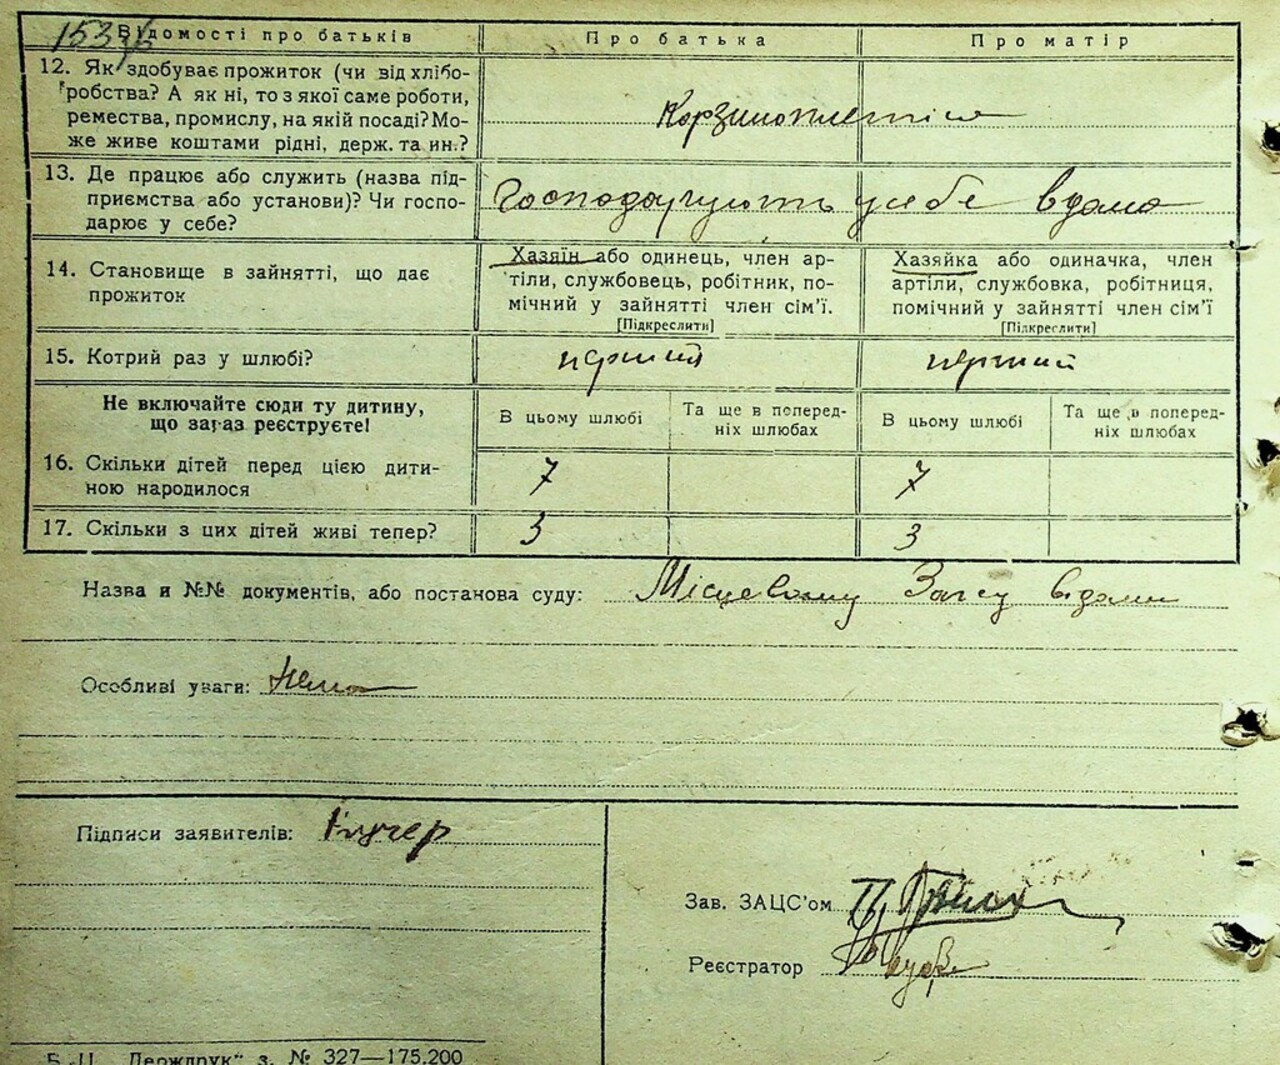 Відомості про батьків Про батька Про матір
12. Як здобуває прожиток (чи від хлібо-
робства? А як ні, то з якої саме роботи,
ремества, промислу, на якій посаді? Мо-
же живе коштами рідні, держ. та ин.?
Корзиноплетіня
13. Де працює або служить (назва під-
приємства або установи)? Чи госпо-
дарює у себе?
Господарують у себе вдома
14. Становище в зайнятті, що дає
прожиток
Хазяїн або одинець, член ар-
тіли, службовець, робітник, по-
мічний у зайнятті член сім'ї.
[Підкреслити]
Хазяйка або одиначка, член
артіли, службовка, робітниця,
помічний у зайнятті член сім'ї
[Підкреслити]
15. Котрий раз у шлюбі? перший перший
Не включайте сюди ту дитину,
що зараз реєструєте!
В цьому шлюбі
Та ще в поперед-
ніх шлюбах
В цьому шлюбі
Та ще в поперед-
ніх шлюбах
16. Скільки дітей перед цією дити-
ною народилося
7 7
17. Скільки з цих дітей живі тепер? 3 3
Назва и №№ документів, або постанова суду: Місцевому Загсу відомі
Особливі уваги: Нема
Підписи заявителів:
Зав. ЗАЦС'ом
Реєстратор
Б.-Ц. „Держдрук" з. № 327—175.200